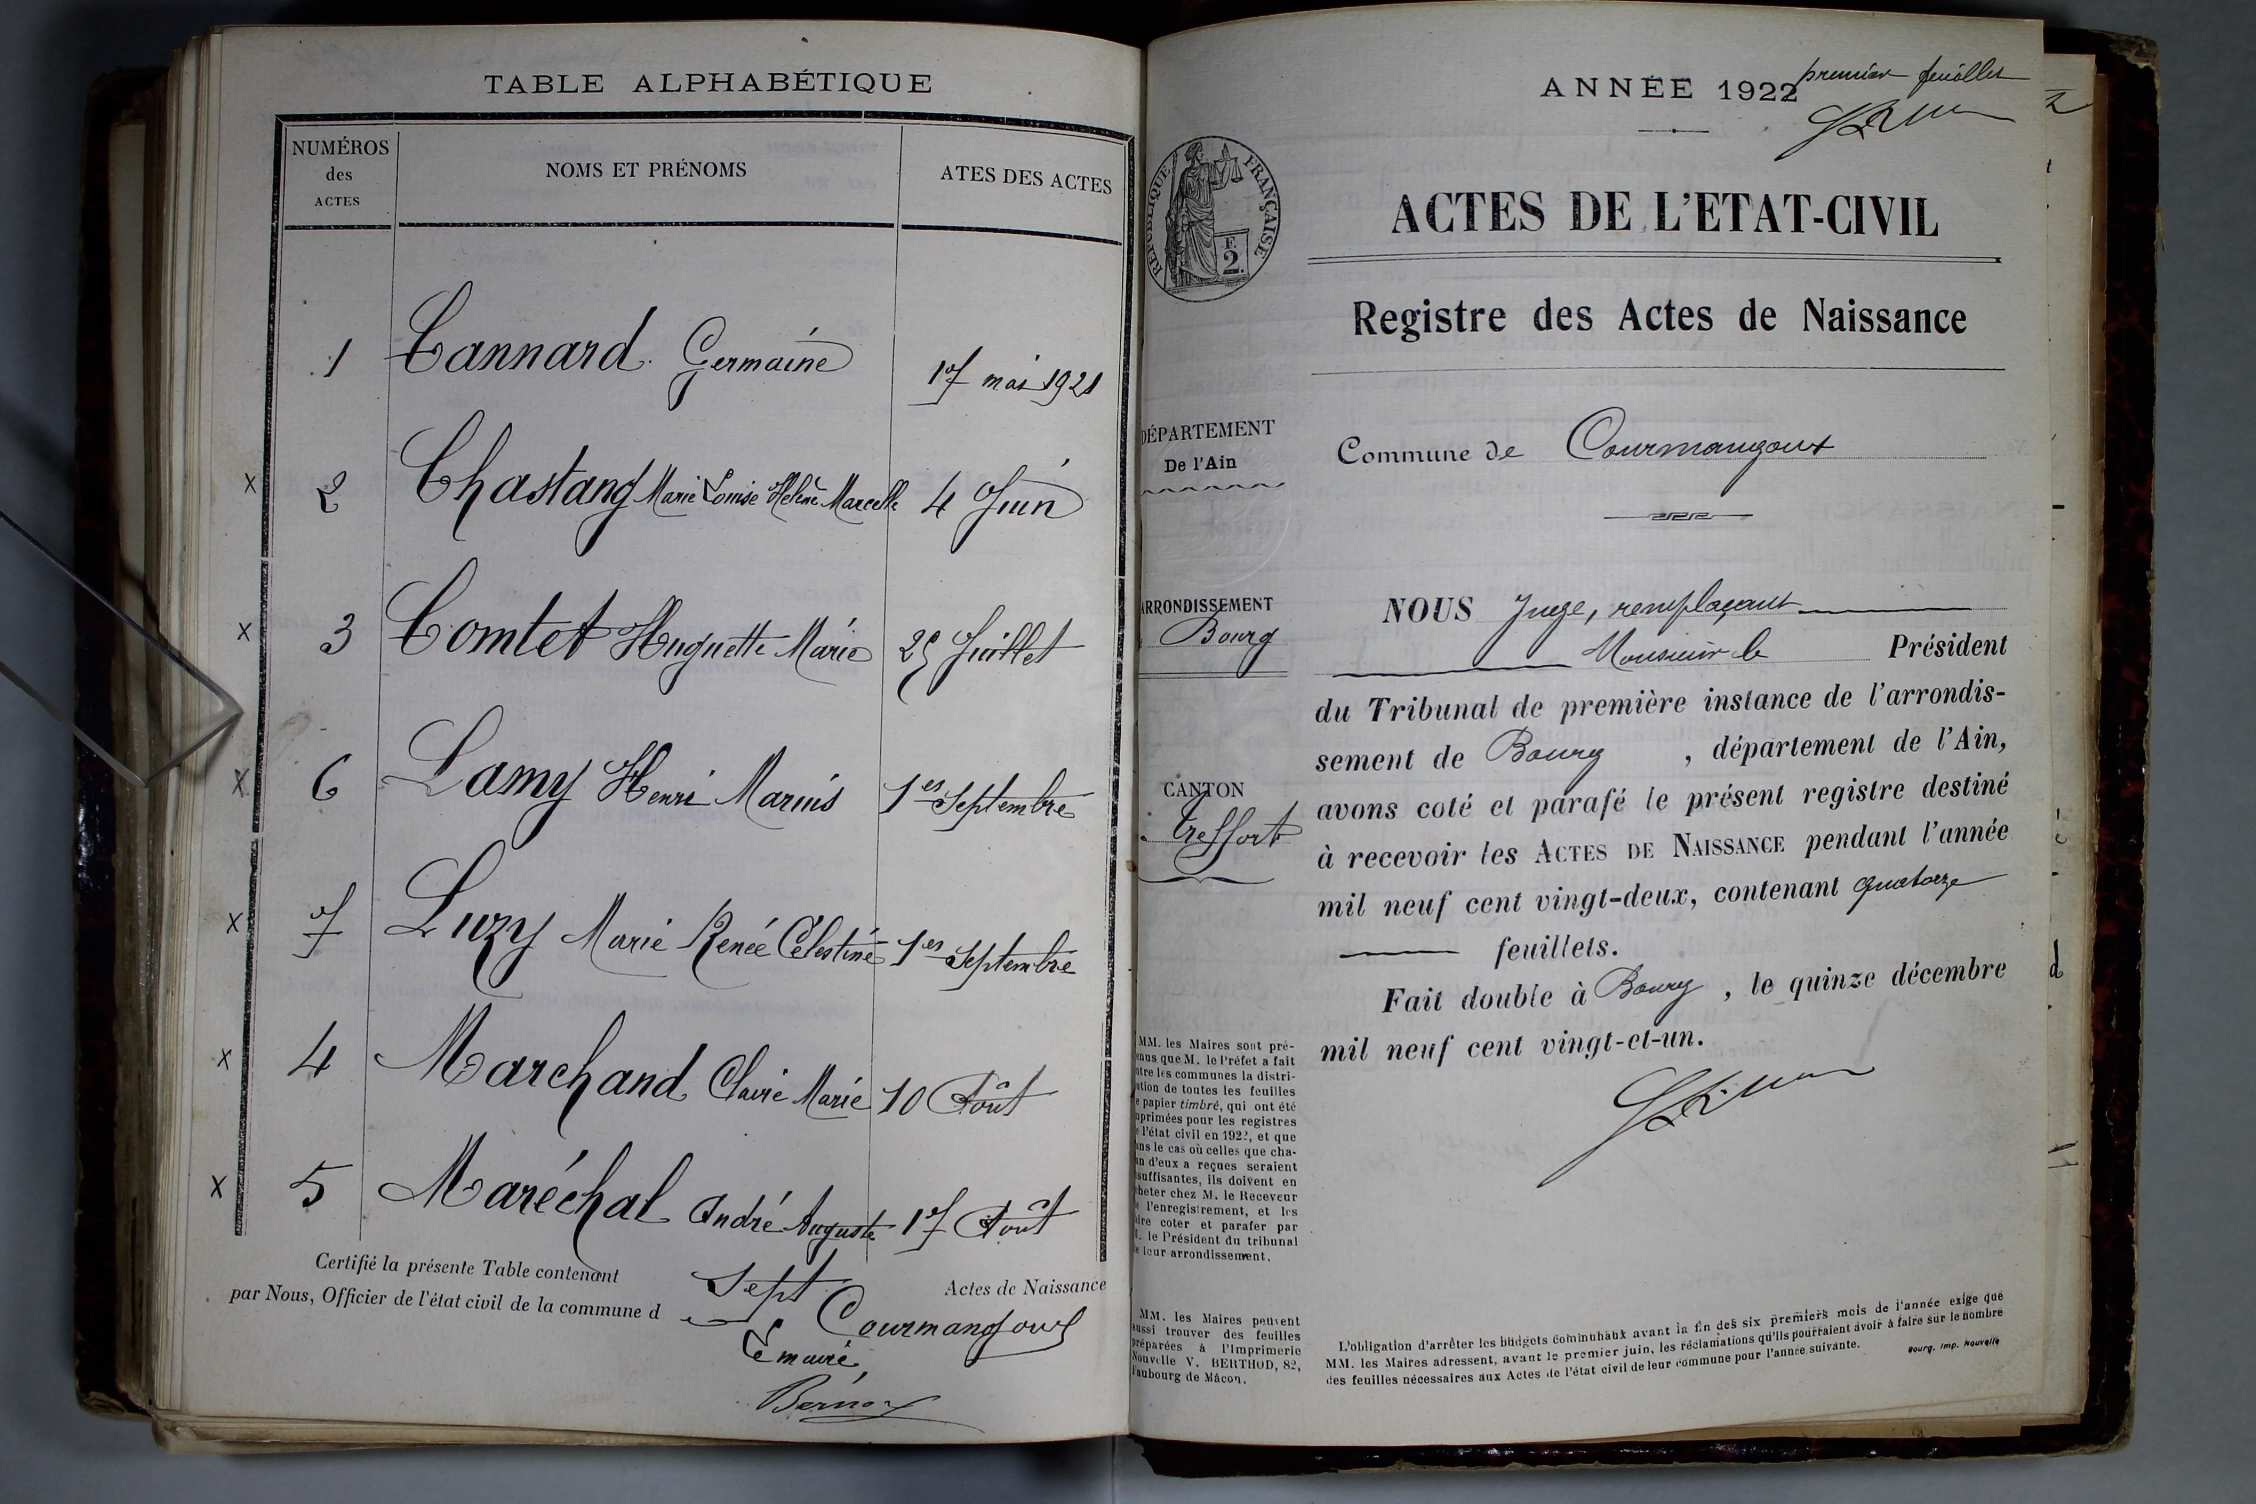 TABLE ALPHABÉTIQUE
NUMÉROS
des
ACTES
NOMS ET PRÉNOMS
ATES DES ACTES
1 Cannard Germaine 17 mai 1921
x 2 Chastang Marie Louise Hélène Marcelle 4 Juin
x 3 Comtet Huguette Marie 25 Juillet
x 6 Lamy Henri Marius 1er Septembre
x 7 Luzy Marie Renée Célestine 1er Septembre
x 4 Marchand Claire Marie 10 Août
x 5 Maréchal André Auguste 17 Août
Certifié la présente Table contenant Sept Actes de Naissance
par Nous, Officier de l'état civil de la commune d Courmangoux
Le maire
ANNÉE 1922
premier feuillet
RÉPUBLIQUE FRANÇAISE
F.
2.
ACTES DE L'ETAT-CIVIL
Registre des Actes de Naissance
DÉPARTEMENT
De l'Ain
ARRONDISSEMENT
Bourg
CANTON
Treffort
MM. les Maires sont pré-
enus que M. le Préfet a fait
ntre les communes la distri-
ution de toutes les feuilles
e papier timbré, qui ont été
mprimées pour les registres
e l'état civil en 1922, et que
ans le cas où celles que cha-
un d'eux a reçues seraient
nsuffisantes, ils doivent en
cheter chez M. le Receveur
e l'enregistrement, et les
aire coter et parafer par
M. le Président du tribunal
e leur arrondissement.
MM. les Maires peuvent
aussi trouver des feuilles
préparées à l'Imprimerie
Nouvelle V. BERTHOD, 82,
faubourg de Mâcon.
Commune de Courmangoux
NOUS Juge, remplaçant
Monsieur le Président
du Tribunal de première instance de l'arrondis-
sement de Bourg , département de l'Ain,
avons coté et parafé le présent registre destiné
à recevoir les ACTES DE NAISSANCE pendant l'année
mil neuf cent vingt-deux, contenant quatorze
feuillets.
Fait double à Bourg , le quinze décembre
mil neuf cent vingt-et-un.
L'obligation d'arrêter les budgets communaux avant la fin des six premiers mois de l'année exige que
MM. les Maires adressent, avant le premier juin, les réclamations qu'ils pourraient avoir à faire sur le nombre
des feuilles nécessaires aux Actes de l'état civil de leur commune pour l'année suivante.
Bourg. Imp. Nouvelle